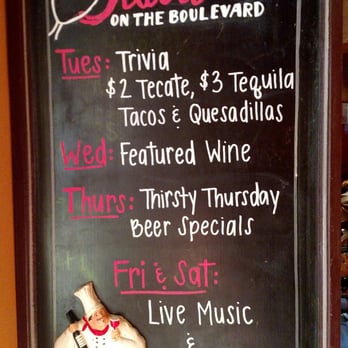 ON THE BOULEVARD
Tues: Trivia
$2 Tecate, $3 Tequila
Tacos & Quesadillas
Wed: Featured Wine
Thurs: Thirsty Thursday
Beer Specials
Fri & Sat:
Live Music
&